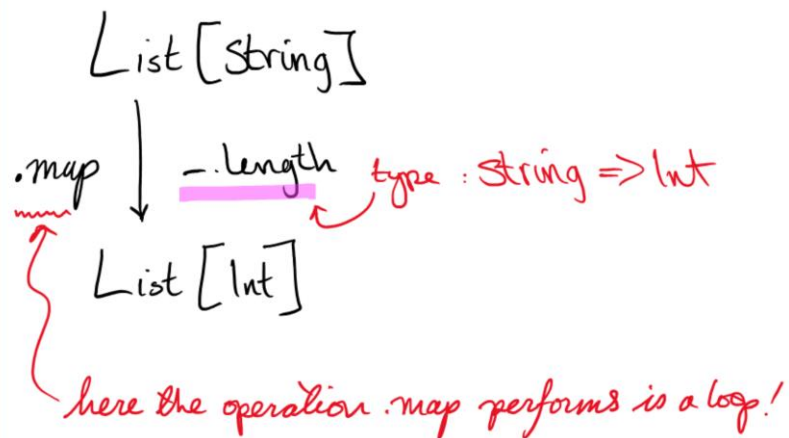 List [String]
.map _.length type : String => Int
List [Int]
here the operation .map performs is a loop!